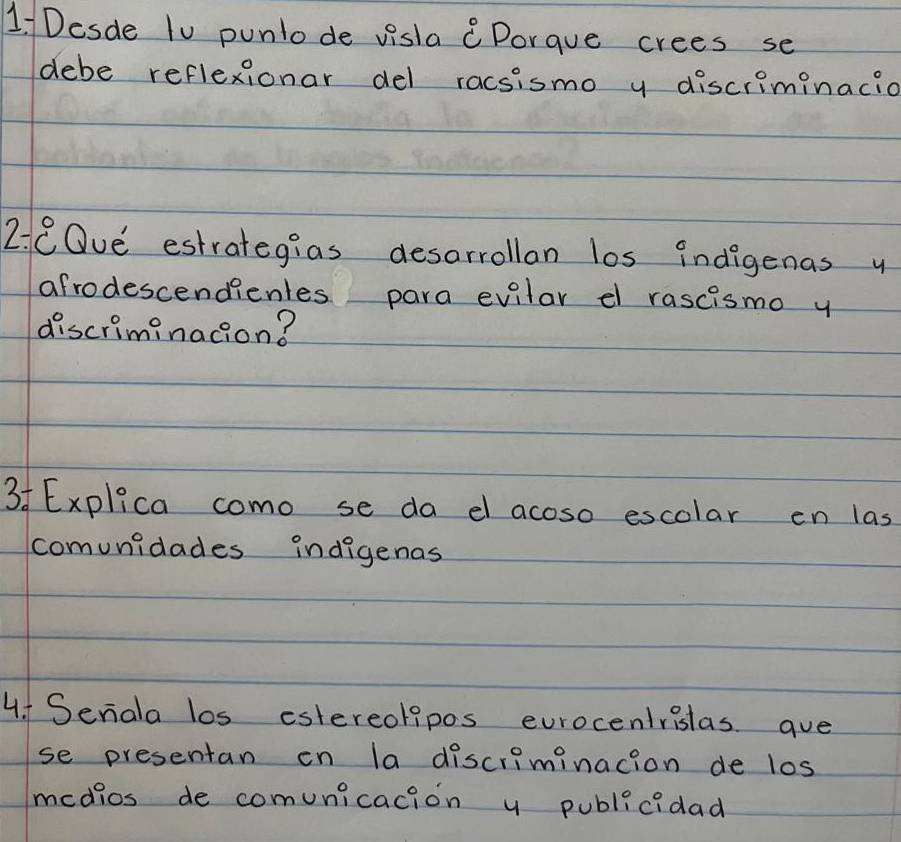 1.- Desde tu punto de vista ¿Porque crees se
debe reflexionar del racsismo y discriminacio
2.- ¿Qué estrategias desarrollan los indigenas y
afrodescendientes para evitar el rascismo y
discriminacion?
3.- Explica como se da el acoso escolar en las
comunidades indigenas
4.- Señala los estereotipos eurocentristas. que
se presentan en la discriminacion de los
medios de comunicación y publicidad